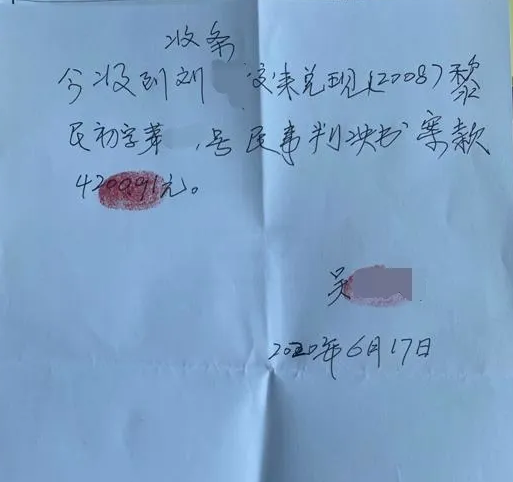 收条
今收到刘 交来兑现(2008)黎
民初字第 号民事判决书案款
4200.91元。
吴
2020年6月17日